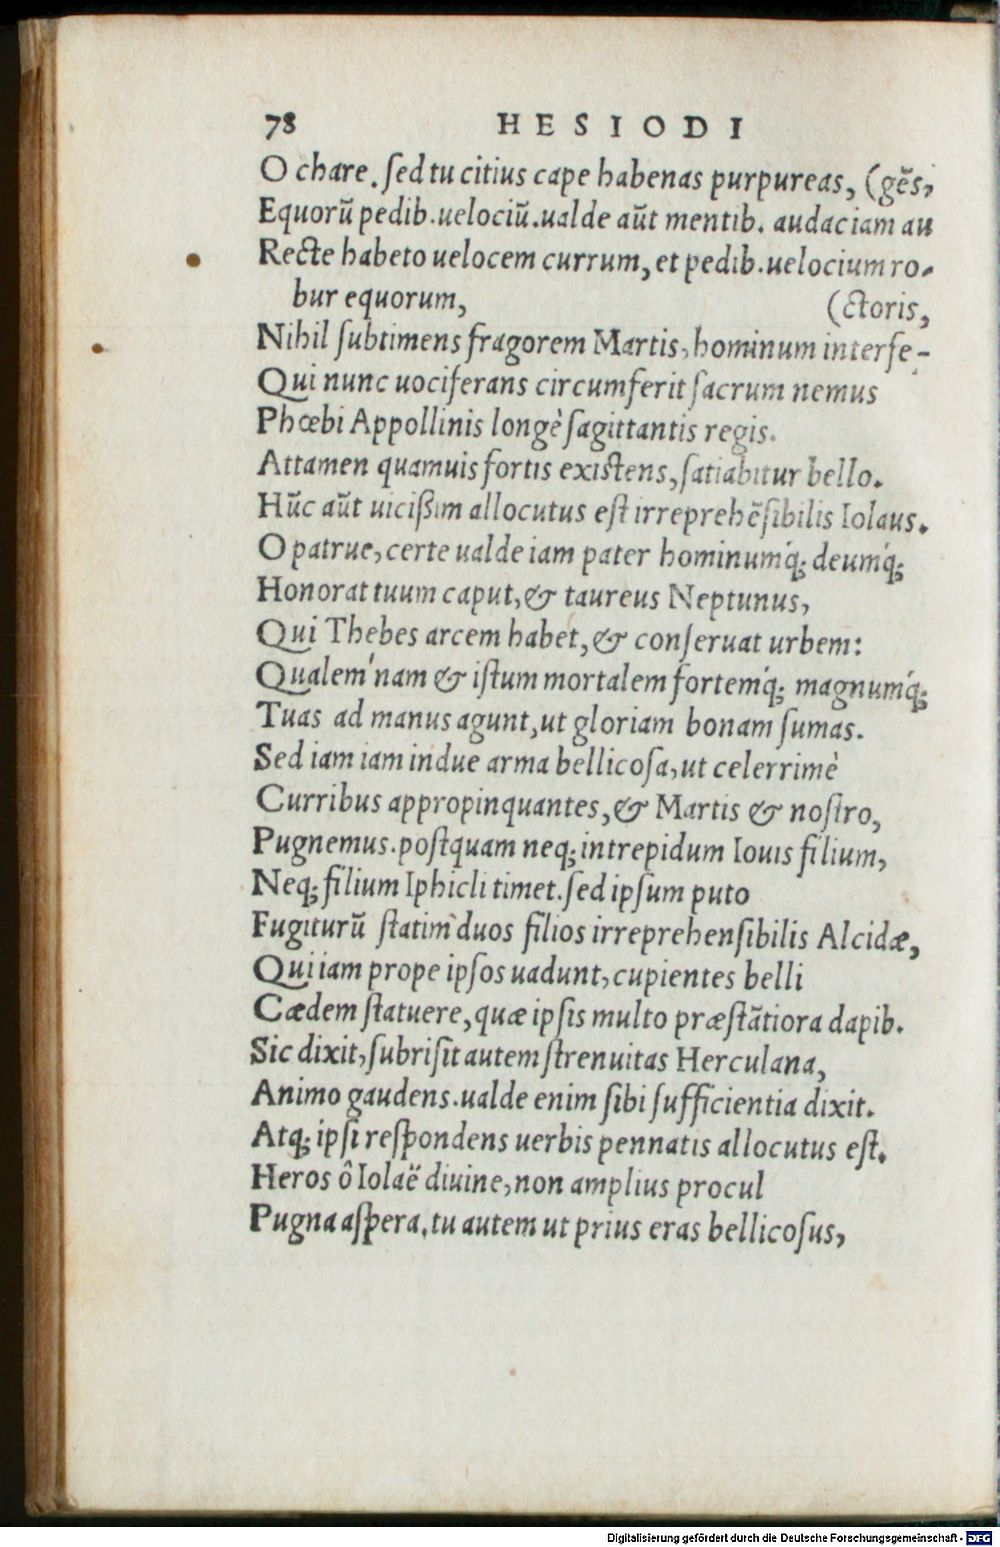 78 HESIODI
O chare. ſed tu citius cape habenas purpureas, (gẽs,
Equorũ pedib. uelociũ. ualde aũt mentib. audaciam au
Recte habeto uelocem currum, et pedib. uelocium ro-
bur equorum, (ctoris,
Nihil ſubtimens fragorem Martis, hominum interfe-
Qui nunc uociferans circumferit ſacrum nemus
Phœbi Appollinis longè ſagittantis regis.
Attamen quamuis fortis existens, ſatiabitur bello.
Hũc aũt uicißim allocutus eſt irreprehẽſibilis Iolaus.
O patrue, certe ualde iam pater hominumq́; deumq́;
Honorat tuum caput, & taureus Neptunus,
Qui Thebes arcem habet, & conſeruat urbem:
Qualem'nam & iſtum mortalem fortemq́; magnumq́;
Tuas ad manus agunt, ut gloriam bonam ſumas.
Sed iam iam indue arma bellicoſa, ut celerrimè
Curribus appropinquantes, & Martis & noſtro,
Pugnemus. poſtquam neq; intrepidum Iouis filium,
Neq; filium Iphicli timet. ſed ipſum puto
Fugiturũ ſtatim duos filios irreprehenſibilis Alcidæ,
Qui iam prope ipſos uadunt, cupientes belli
Cædem ſtatuere, quæ ipſis multo præſtãtiora dapib.
Sic dixit, ſubriſit autem ſtrenuitas Herculana,
Animo gaudens. ualde enim ſibi ſufficientia dixit.
Atq; ipſi reſpondens uerbis pennatis allocutus eſt.
Heros ô Iolaë diuine, non amplius procul
Pugna aſpera. tu autem ut prius eras bellicoſus,
Digitalisierung gefördert durch die Deutsche Forschungsgemeinschaft - DFG